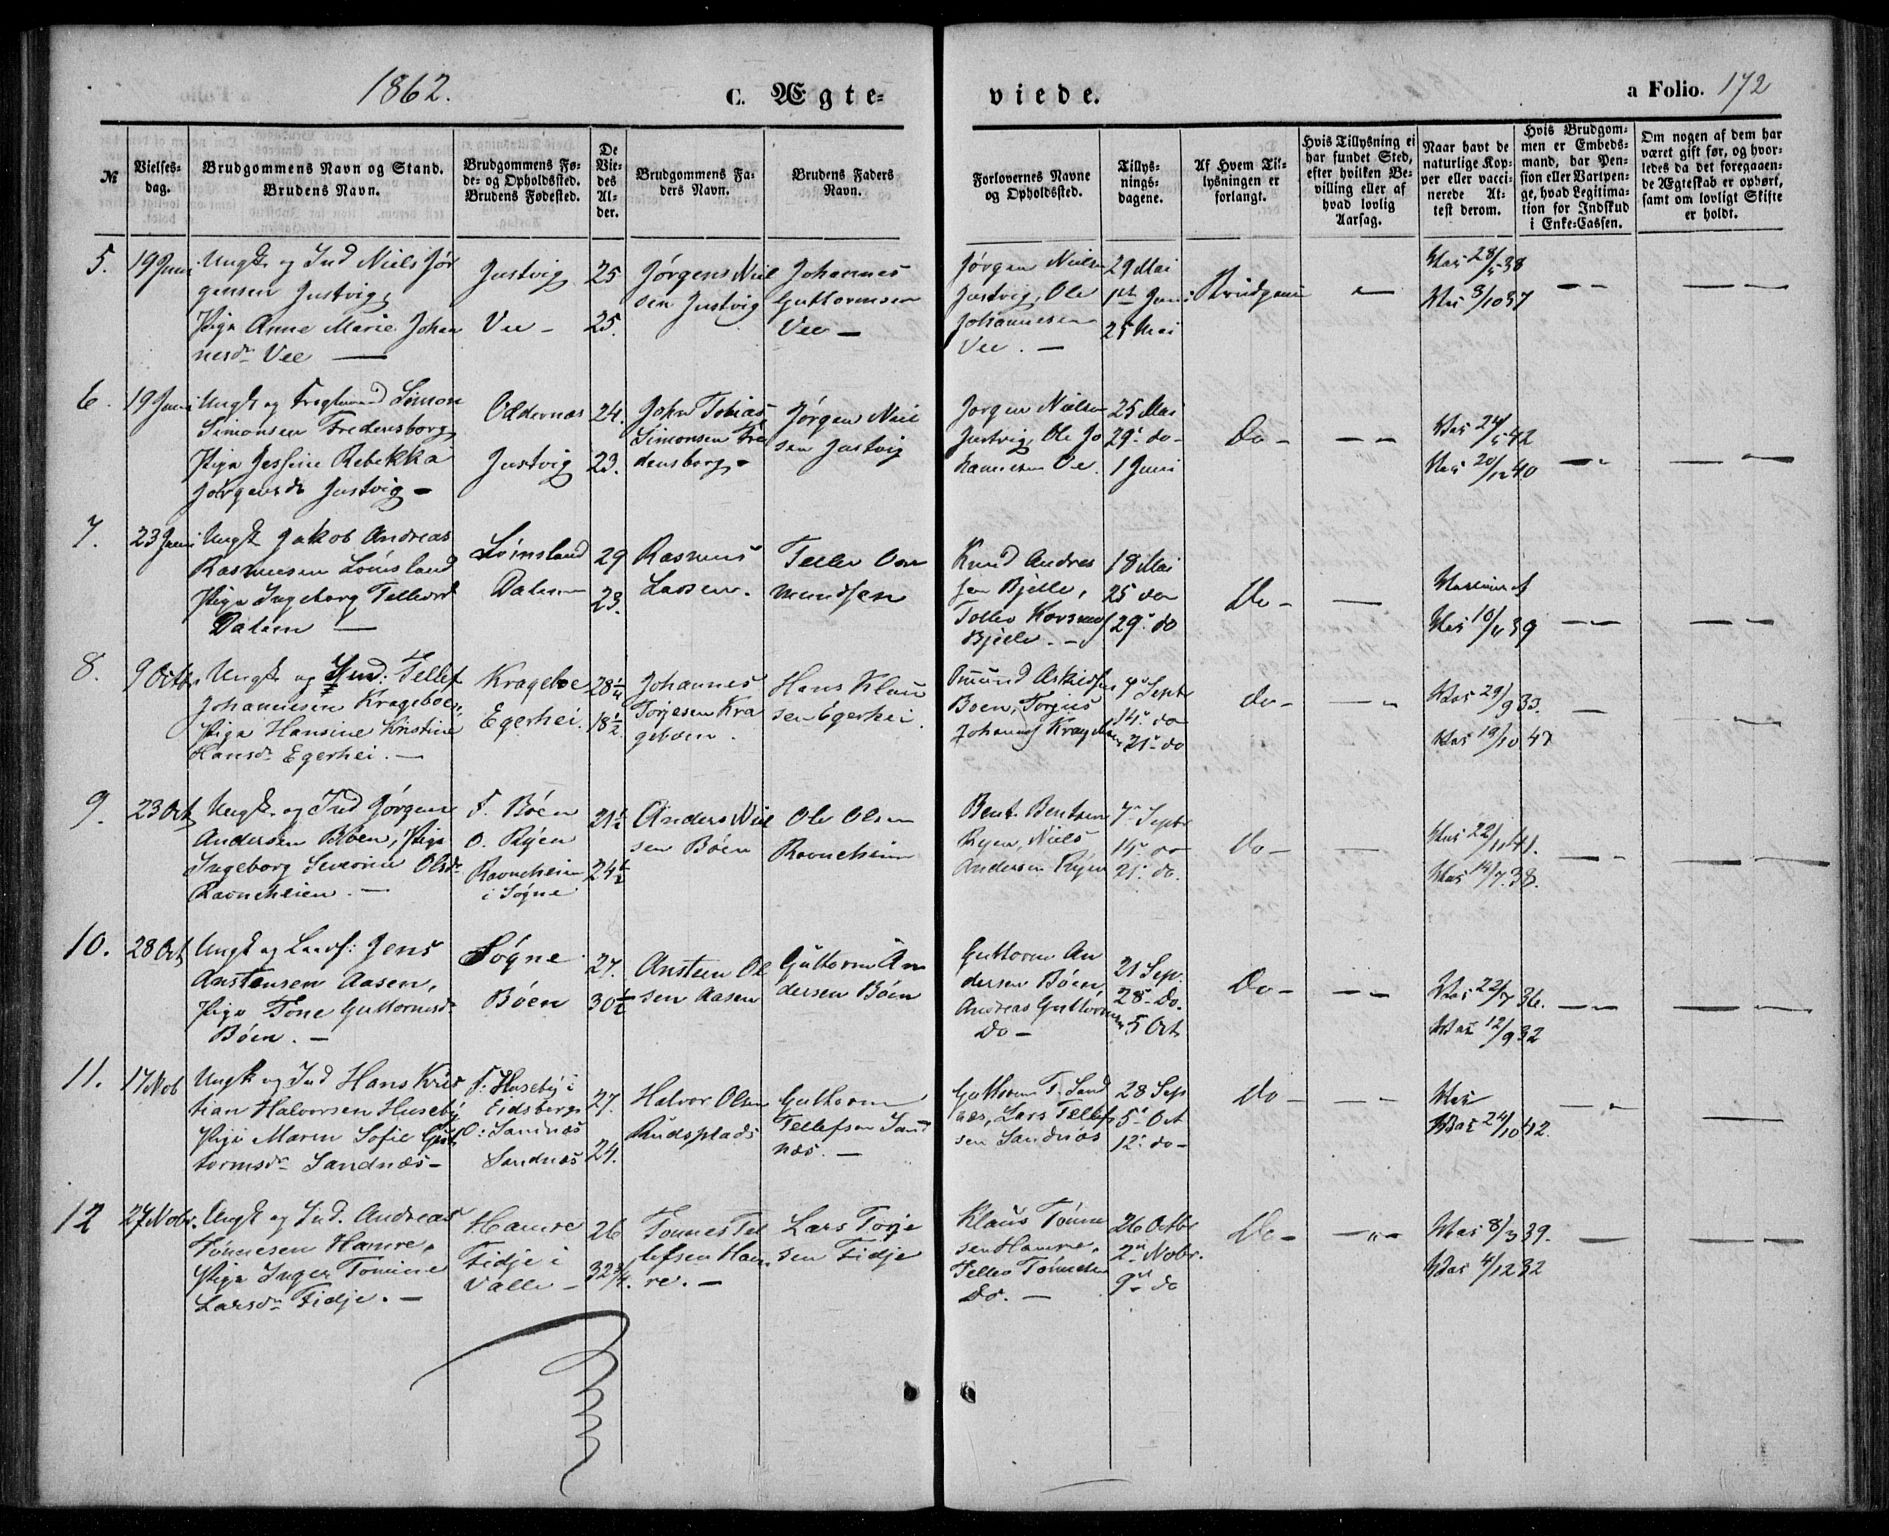 1862.
C. Ægte-
viede.
a Folio. 172
№
Vielses-
dag.
Brudgommens Navn og Stand.
Brudens Navn.
Brudgommens Fø-
de- og Opholdssted.
Brudens Fødested.
De
Vie-
des
Al-
der.
Brudgommens Fa-
ders Navn.
Brudens Faders
Navn.
Forlovernes Navne
og Opholdssted.
Tillys-
nings-
dagene.
Af Hvem Til-
lysningen er
forlangt.
Hvis Tillysning ei
har fundet Sted,
efter hvilken Be-
villing eller af
hvad lovlig
Aarsag.
Naar havt de
naturlige Kop-
per eller vacci-
nerede At-
test derom.
Hvis Brudgom-
men er Embeds-
mand, har Pen-
sion eller Vartpen-
ge, hvad Legitima-
tion for Indskud
i Enke-Cassen.
Om nogen af dem har
været gift før, og hvor-
ledes da det foregaaen-
de Ægteskab er ophørt,
samt om lovligt Skifte
er holdt.
5. 19 Juni
Ungk. og Ind Niels Jør
gensen Justvig,
Pige Anne Marie Johan
nesdr Vee —
Justvig
Vee —
25
25.
Jørgens Niel
sen Justvig
Johannes
Guttormsen
Vee —
Jørgen Nielsen
Justvig, Ole
Johannesen
Vee. —
29 Mai
1ste Juni
25 Mai
Brudgom
—
Vac 28/5 38
Vac 3/10 37
6. 19 Juni
Ungk og Simon
Simonsen Fredensborg,
Pige Jessine Rebekka
Jørgensdr Justvig —
Oddernæs
Justvig
24.
23.
John Tobias
Simonsen Fre
densborg.
Jørgen Niel
sen Justvig
Jørgen Nielsen
Justvig, Ole Jo
hannesen Ve.
25 Mai
29. do —
1 Juni
Do —
Vac 24/5 42
Vac 20/12 40
7. 23 Juni
Ungk Jakob Andreas
Rasmusen Lømsland
Pige Ingeborg Tellevsd
Dalen —
Lømsland
Dalen
29
23.
Rasmus
Lassen.
Tellev Om
mundsen
Knud Andres
sen Bjelle,
Tellev
Bjelle. —
18 Mai
25 do
29. do
Do —
Vaccineret
Vac 10/11 39
8. 9 Octbr
Ungk og Ind: Tellef
Johannesen Krageboen,
Pige Hansine Kristine
Hansdr Egerhei. —
Krageboe
Egerhei.
28 1/4
18 1/2
Johannes
Torjesen Kra
geboen.
Hans Klau
sen Egerhei.
Omund Askildsen
Boen, Torjus
Johannes
7. Septr
14. do
21. do
do —
Vac 29/9 33.
Vac 19/10 47
9. 23 Oct
Ungk. og Ind Jørgen
Andersen Bøen, Pige
Ingeborg Severine Olsdr
Ravneheien. —
F. Bøen
O. Ryen
Ravneheien
i Søgne
21 1/2
24 1/2
Anders Niel
sen Bøen
Ole Olsen
Ravneheien
Bent Bentsen
Ryen, Niels
Andersen Ryen
7. Septr
14. do
21. do.
do —
Vac 22/11 41.
Vac 14/7 38.
10. 28 Oct
Ungk og Landf: Jens
Anstensen Aasen,
Pige Tone Guttormsdr
Bøen. —
Søgne
Bøen
27.
30 1/2
Ansten Ol
sen Aasen
Guttorm An
dersen Bøen
Guttorm An
dersen Bøen,
Andreas Guttorm
Do —
21 Sep.
28. Do.
5 Oct
Do —
Vac 22/7 36.
Vac 12/9 32
11. 17 Nob
Ungk og Ind Hans Kris
tian Halvorsen Huseby
Pige Maren Sofie Gut
tormsdr Sandnæs —
F. Huseby i
Eidsberg
O: Sandnæs
Sandnæs
27.
24.
Halvor Olsen
Rudsplads
Guttorm
Tellefsen Sand
næs. —
Guttorm T. Sand
næs, Lars Tellef
sen Sandnæs
28 Sep
5. Oct
12. do —
do —
Vac
Vac 24/10 42.
12 27 Nobr.
Ungk og Ind. Andreas
Tønnesen Hamre,
Pige Inger Tomine
Larsdr Fidje. —
Hamre
Fidje i
Valle —
26
32 3/4.
Tønnes Tel
lefsen Ham
re. —
Lars Torje
sen Fidje
Klaus Tønne
sen Hamre,
Tellev Tønnesen
Do. —
26 Octbr
2. Nobr.
9. do
Do —
Vac 8/3 39.
Vac 4/12 32